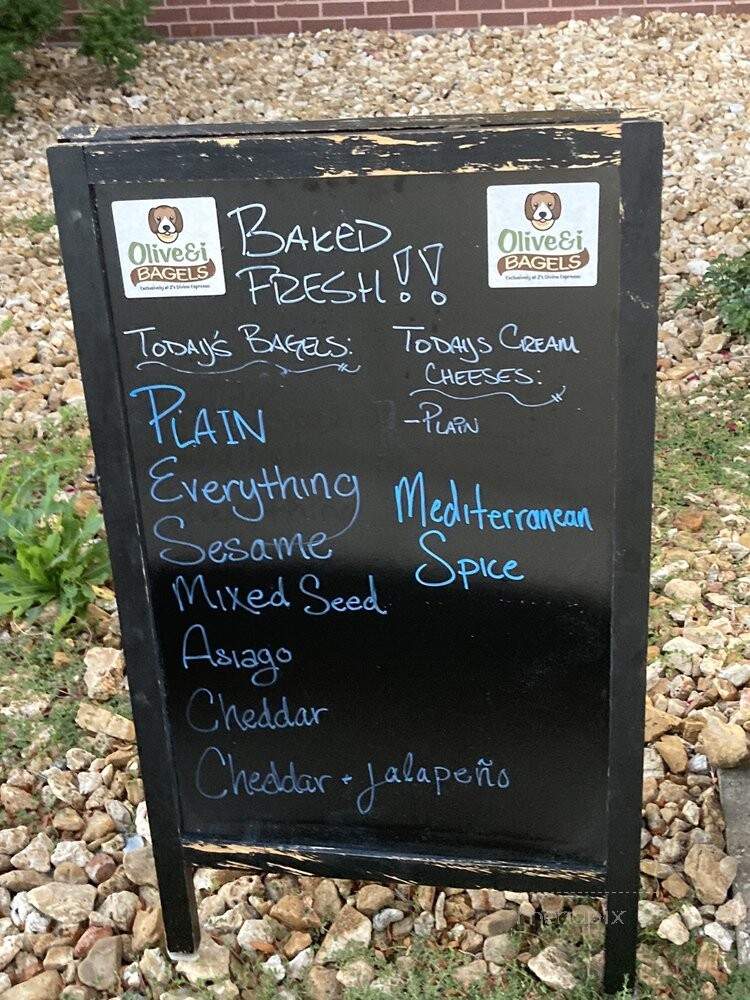 Olive&i
BAGELS
Exclusively at Z's Divine Espresso
BAKED
FRESH!!
Olive&i
BAGELS
Exclusively at Z's Divine Espresso
TODAY'S BAGELS:
PLAIN
Everything
Sesame
Mixed Seed
Asiago
Cheddar
Cheddar + Jalapeño
TODAYS CREAM
CHEESES:
-PLAIN
Mediterranean
Spice
menupix